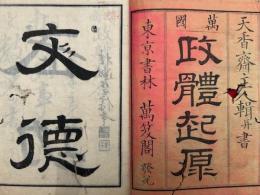 天香齋主人輯并書
萬國
政體起原
東京書林 萬笈閣 發兌
文德